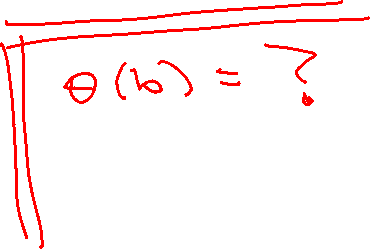 θ(b) = ?